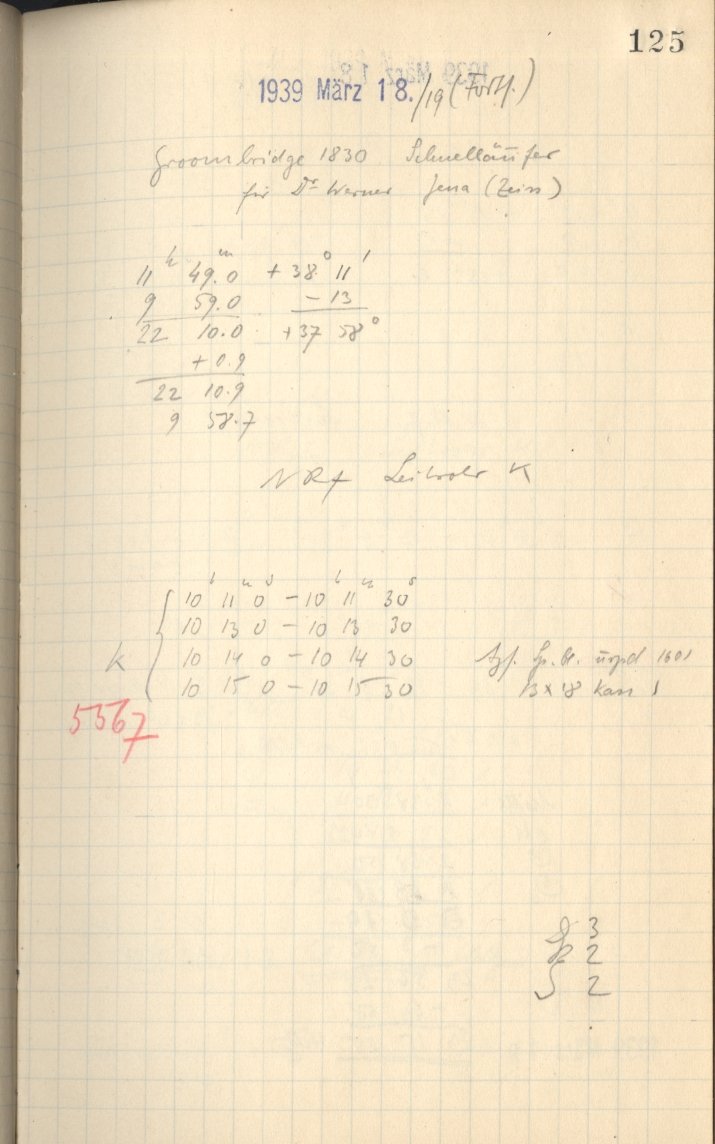 125
1939 März 18./19 (Forts.)
Groombridge 1830 Schnelläufer
für Dr Werner Jena (Zeiss)
11 h 49.0 m + 38° 11'
9 59.0 - 13
22 10.0 +37 58°
+ 0.9
22 10.9
9 58.7
Leitrohr K
10 h 11 m 0 s - 10 h 11 m 30 s
10 13 0 - 10 13 30
K 10 14 0 - 10 14 30
10 15 0 - 10 15 30
13 x 18 Kass 1
5567
3
2
S 2